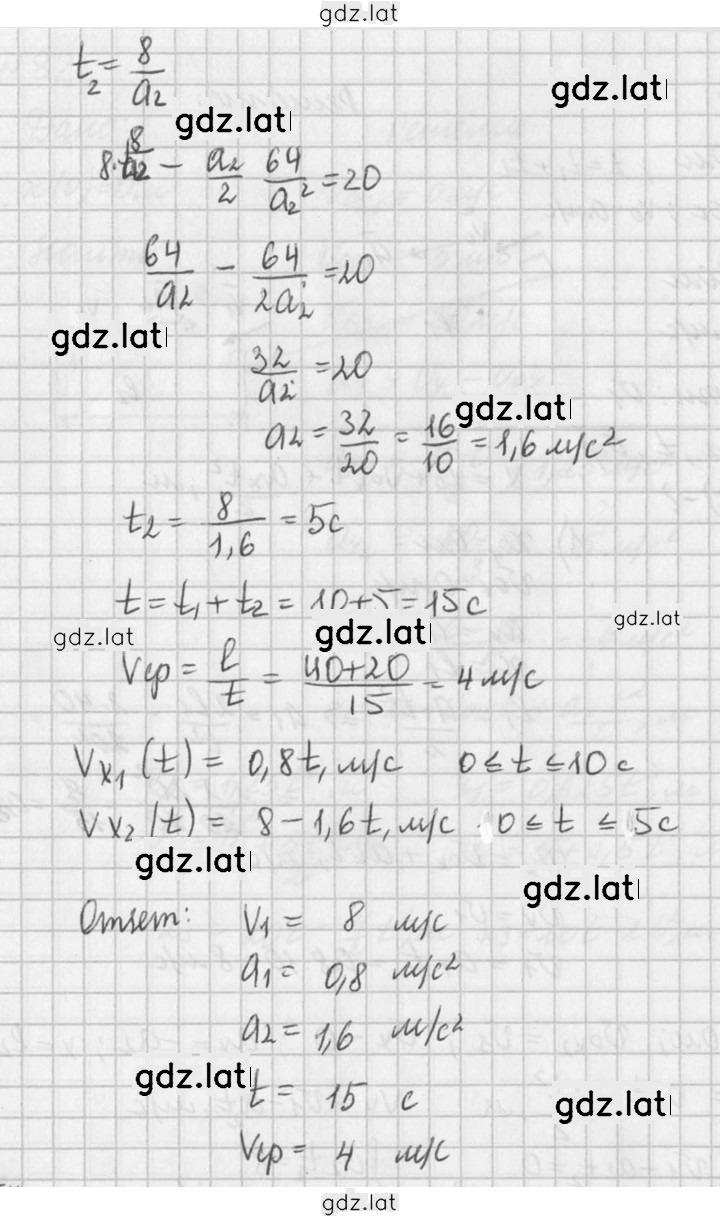 gdz.lat
t₂ = 8/a₂
gdz.lat
gdz.lat
8·8/a₂ − a₂/2 64/a₂² = 20
64/a₂ − 64/2a₂ = 20
gdz.lat
32/a₂ = 20
gdz.lat
a₂ = 32/20 = 16/10 = 1,6 м/с²
t₂ = 8/1,6 = 5с
t = t₁ + t₂ = 10+5 = 15с
gdz.lat
gdz.lat
gdz.lat
Vср = l/t = 40+20/15 = 4 м/с
Vx₁(t) = 0,8t, м/с 0 ≤ t ≤ 10 с
Vx₂(t) = 8 − 1,6t, м/с 0 ≤ t ≤ 5с
gdz.lat
gdz.lat
Ответ: V₁ = 8 м/с
a₁ = 0,8 м/с²
a₂ = 1,6 м/с²
gdz.lat
t = 15 с
gdz.lat
Vср = 4 м/с
gdz.lat